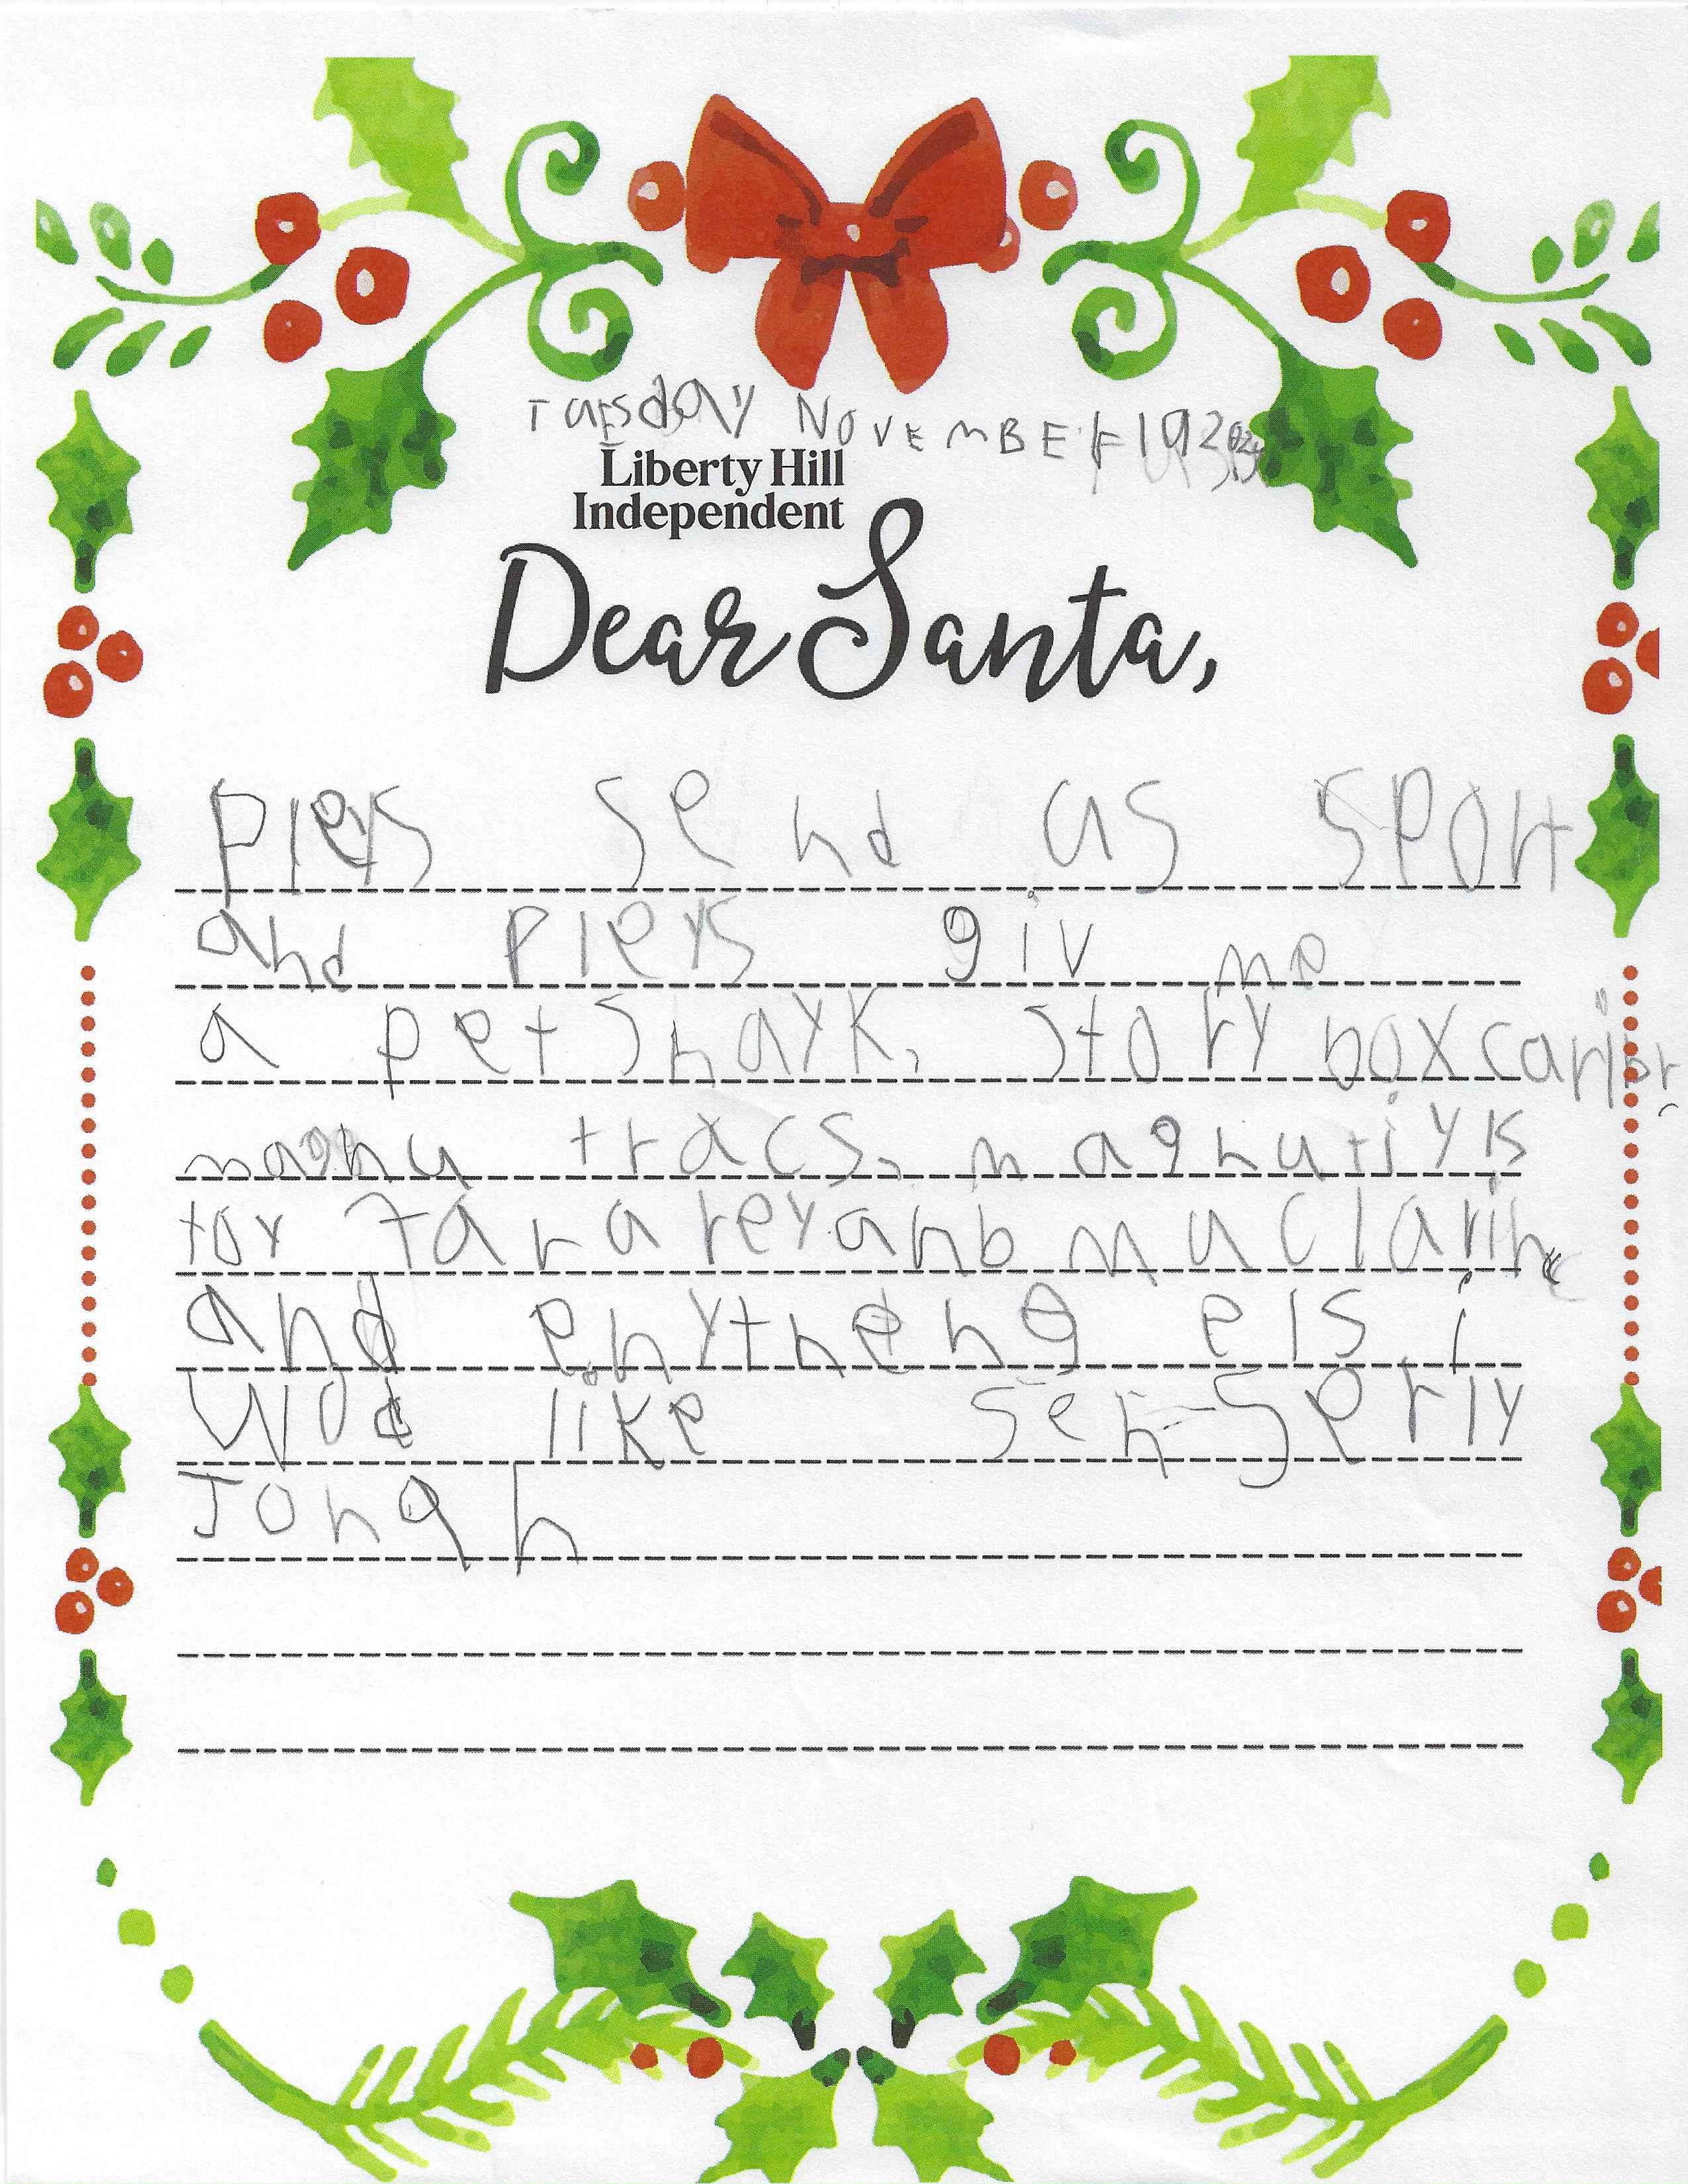 Tuesday NOVEMBEr 19 2024
Liberty Hill
Independent
Dear Santa,
pleys send us sport
and pleys giv me
a pet shayk, story box
magnu tracs, magnutiyls
toy
and enytheng els i
Wod like sen-serly
Jonah